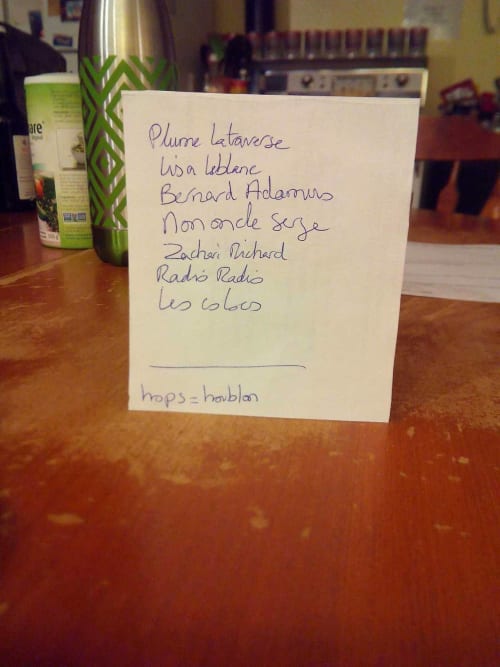 Plume Latraverse
Lisa Leblanc
Bernard Adamus
Mononcle Serge
Zachari Richard
Radio Radio
Les colocs
hops = houblon